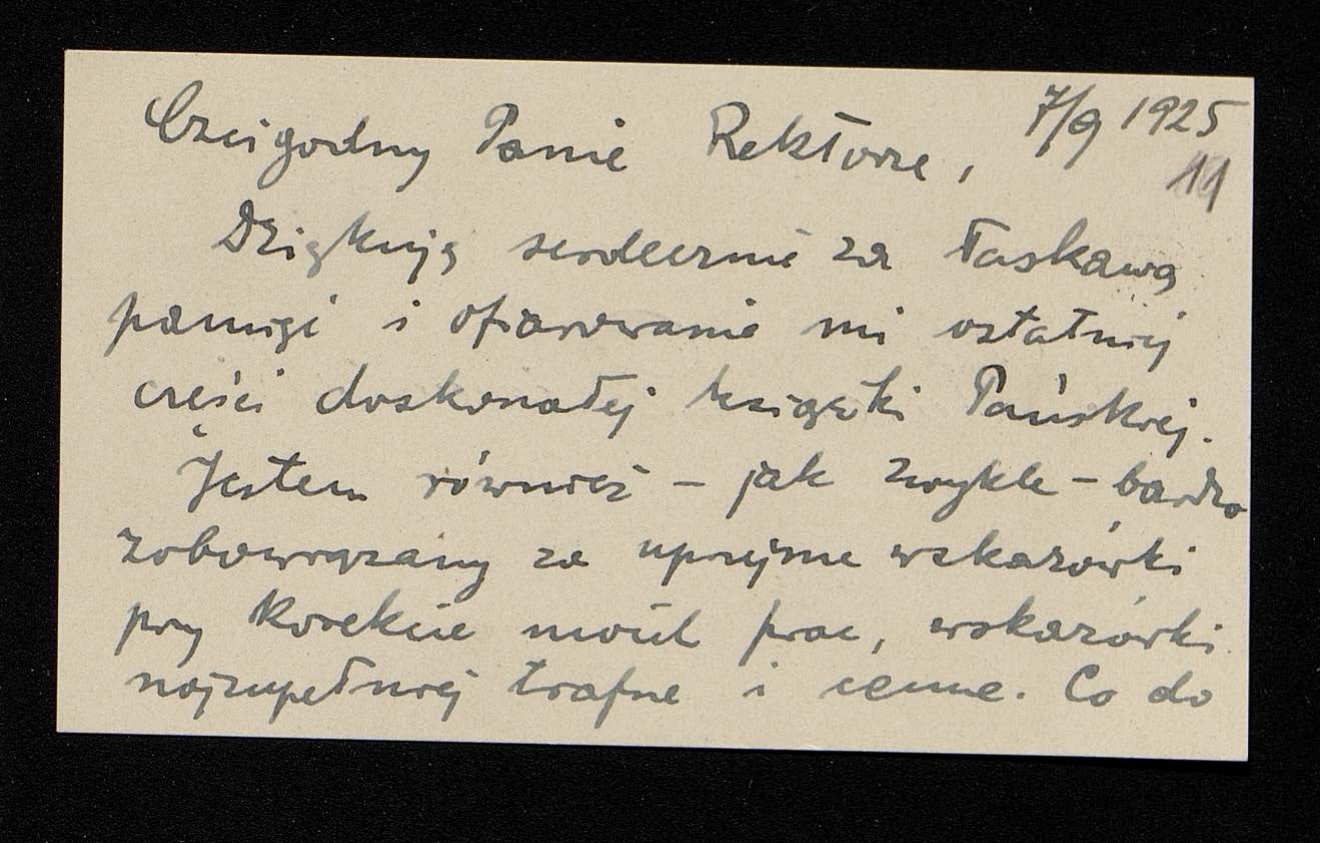 7/9 1925
Czcigodny Panie Rektorze,
11
Dziękuję serdecznie za łaskawą
pamięć i ofiarowanie mi ostatniej
części doskonałej książki Pańskiej.
Jestem również – jak zwykle – bardzo
zobowiązany za uprzejme wskazówki
przy korekcie moich prac, wskazówki
najzupełniej trafne i cenne. Co do